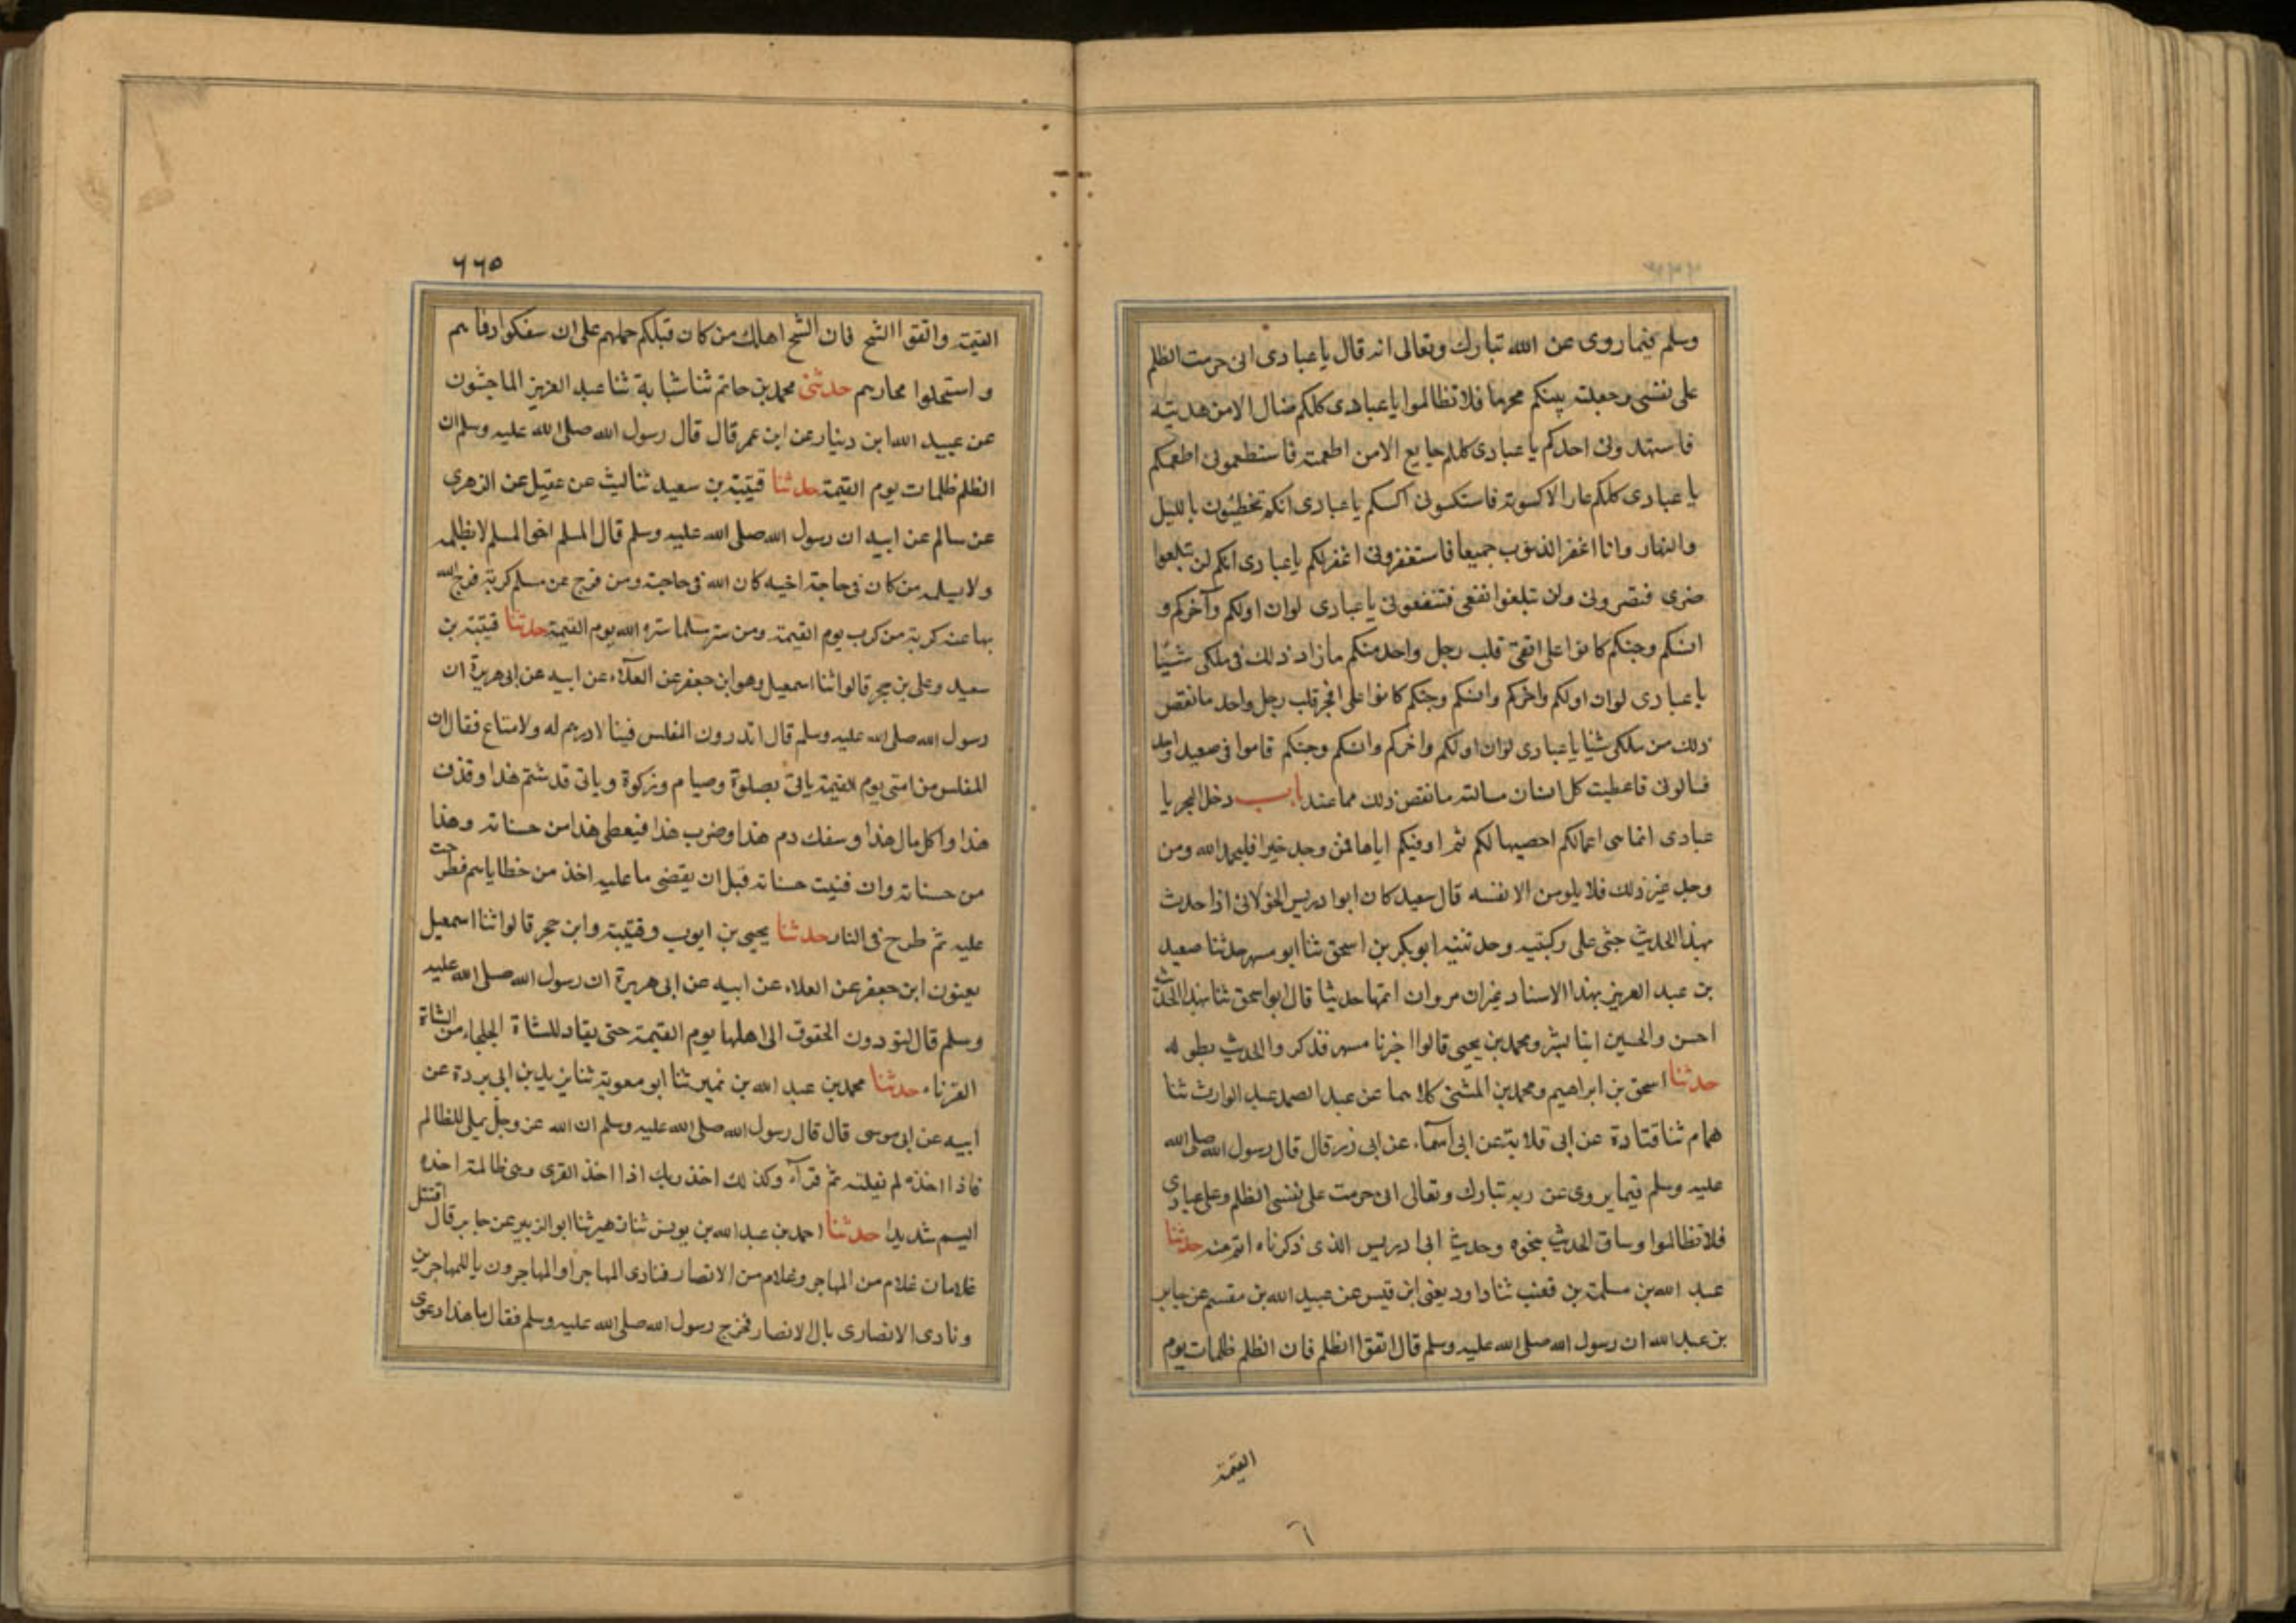 وسلم فيما روى عن الله تبارك وتعالى انه قال يا عبادى انى حرمت الظلم
على نفسى وجعلته بينكم محرما فلا تظالموا يا عبادى كلكم ضال الا من هديته
فاستهدونى احدكم يا عبادى كلكم جايع الا من اطعمته فاستطعمونى اطعمكم
يا عبادى كلكم عار الا كسوته فاستكسونى اكسكم يا عبادى انكم تخطئون بالليل
والنهار وانا اغفر الذنوب جميعا فاستغفرونى اغفر لكم يا عبادى انكم لن تبلغوا
ضرى فتضرونى ولن تبلغوا نفعى فتنفعونى يا عبادى لوان اولكم وآخركم و
انسكم وجنكم كانوا على اتقى قلب رجل واحد منكم ما زاد ذلك فى ملكى شيئا
يا عبادى لوان اولكم واخركم وانسكم وجنكم كانوا على افجر قلب رجل واحد ما نقص
ذلك من ملكى شيئا يا عبادى لوان اولكم واخركم وانسكم وجنكم قاموا فى صعيد واحد
فسالونى فاعطيت كل انسان مسالته ما نقص ذلك مما عند باب دخل البحر يا
عبادى انما هى اعمالكم احصيها لكم ثم اوفيكم اياها فمن وجد خيرا فليحمد الله ومن
وجد غير ذلك فلا يلومن الا نفسه قال سعيد كان ابوا دريس الخولانى اذا حدث
بهذا الحديث جثى على ركبتيه وحدثنيه ابو بكر بن اسحق ثنا ابو مسهر حدثنا صعيد
بن عبد العزيز بهذا الاسناد غيران مروان اتمها حديثا قال ابو اسحق ثنا بهذا الحديث
احسن والحسين ابنا بشر ومحمد بن يحيى قالوا اخبرنا مسهر فذكروا الحديث بطوله
حدثنا اسحق بن ابراهيم ومحمد بن المثنى كلاهما عن عبد الصمد عبد الوارث ثنا
همام ثنا قتادة عن ابى قلابة عن ابى اسماء عن ابى ذر قال قال رسول الله صلى الله
عليه وسلم فيما يروى عن ربه تبارك وتعالى انى حرمت على نفسى الظلم وعلى عبادى
فلا تظالموا وساق الحديث بنحوه وحديث ابى ادريس الذى ذكرناه اتم منه حدثنا
عبد الله بن مسلمة بن قعنب ثنا داود يعنى ابن قيس عن عبيد الله بن مقسم عن جابر
بن عبد الله ان رسول الله صلى الله عليه وسلم قال اتقوا الظلم فان الظلم ظلمات يوم
القيمة
٦
٦٦٥
القيمة واتقوا الشح فان الشح اهلك من كان قبلكم حملهم على ان سفكوا دماءهم
واستحلوا محارمهم حدثنى محمد بن حاتم ثنا شبابة ثنا عبد العزيز الماجشون
عن عبيد الله ابن دينار عن ابن عمر قال قال رسول الله صلى الله عليه وسلم ان
الظلم ظلمات يوم القيمة حدثنا قتيبة بن سعيد ثنا ليث عن عقيل عن الزهرى
عن سالم عن ابيه ان رسول الله صلى الله عليه وسلم قال المسلم اخو المسلم لا يظلمه
ولا يسلمه من كان فى حاجة اخيه كان الله فى حاجته ومن فرج عن مسلم كربة فرج الله
بها عنه كربة من كرب يوم القيمة ومن ستر مسلما ستره الله يوم القيمة حدثنا قتيبة بن
سعيد وعلى بن حجر قالوا ثنا اسمعيل وهو ابن جعفر عن العلاء عن ابيه عن ابى هريرة ان
رسول الله صلى الله عليه وسلم قال اتدرون المفلس فينا لا درهم له ولا متاع فقال ان
المفلس من امتى يوم القيمة ياتى بصلوة وصيام وزكوة وياتى قد شتم هذا وقذف
هذا واكل مال هذا وسفك دم هذا وضرب هذا فيعطى هذا من حسناته وهذا
من حسناته وان فنيت حسناته قبل ان يقضى ما عليه اخذ من خطاياهم فطرحت
عليه ثم طرح فى النار حدثنا يحيى بن ايوب وقتيبة وابن حجر قالوا ثنا اسمعيل
يعنون ابن جعفر عن العلاء عن ابيه عن ابى هريرة ان رسول الله صلى الله عليه
وسلم قال لتودون الحقوق الى اهلها يوم القيمة حتى يقاد للشاة الجلحاء من الشاة
القرناء حدثنا محمد بن عبد الله بن نمير ثنا ابو معوية ثنا يزيد بن ابى بردة عن
ابيه عن ابى موسى قال قال رسول الله صلى الله عليه وسلم ان الله عز وجل يملى للظالم
فاذا اخذه لم يفلته ثم قرآء وكذلك اخذ ربك اذا اخذ القرى وهى ظالمة اخذه
اليم شديدا حدثنا احمد بن عبد الله بن يونس ثنا زهير ثنا ابو الزبير عن جابر قال اقتتل
غلامان غلام من المهاجر وغلام من الانصار فنادى المهاجر او المهاجرون يا للمهاجرين
ونادى الانصارى يال الانصار فخرج رسول الله صلى الله عليه وسلم فقال ما هذا دعوى